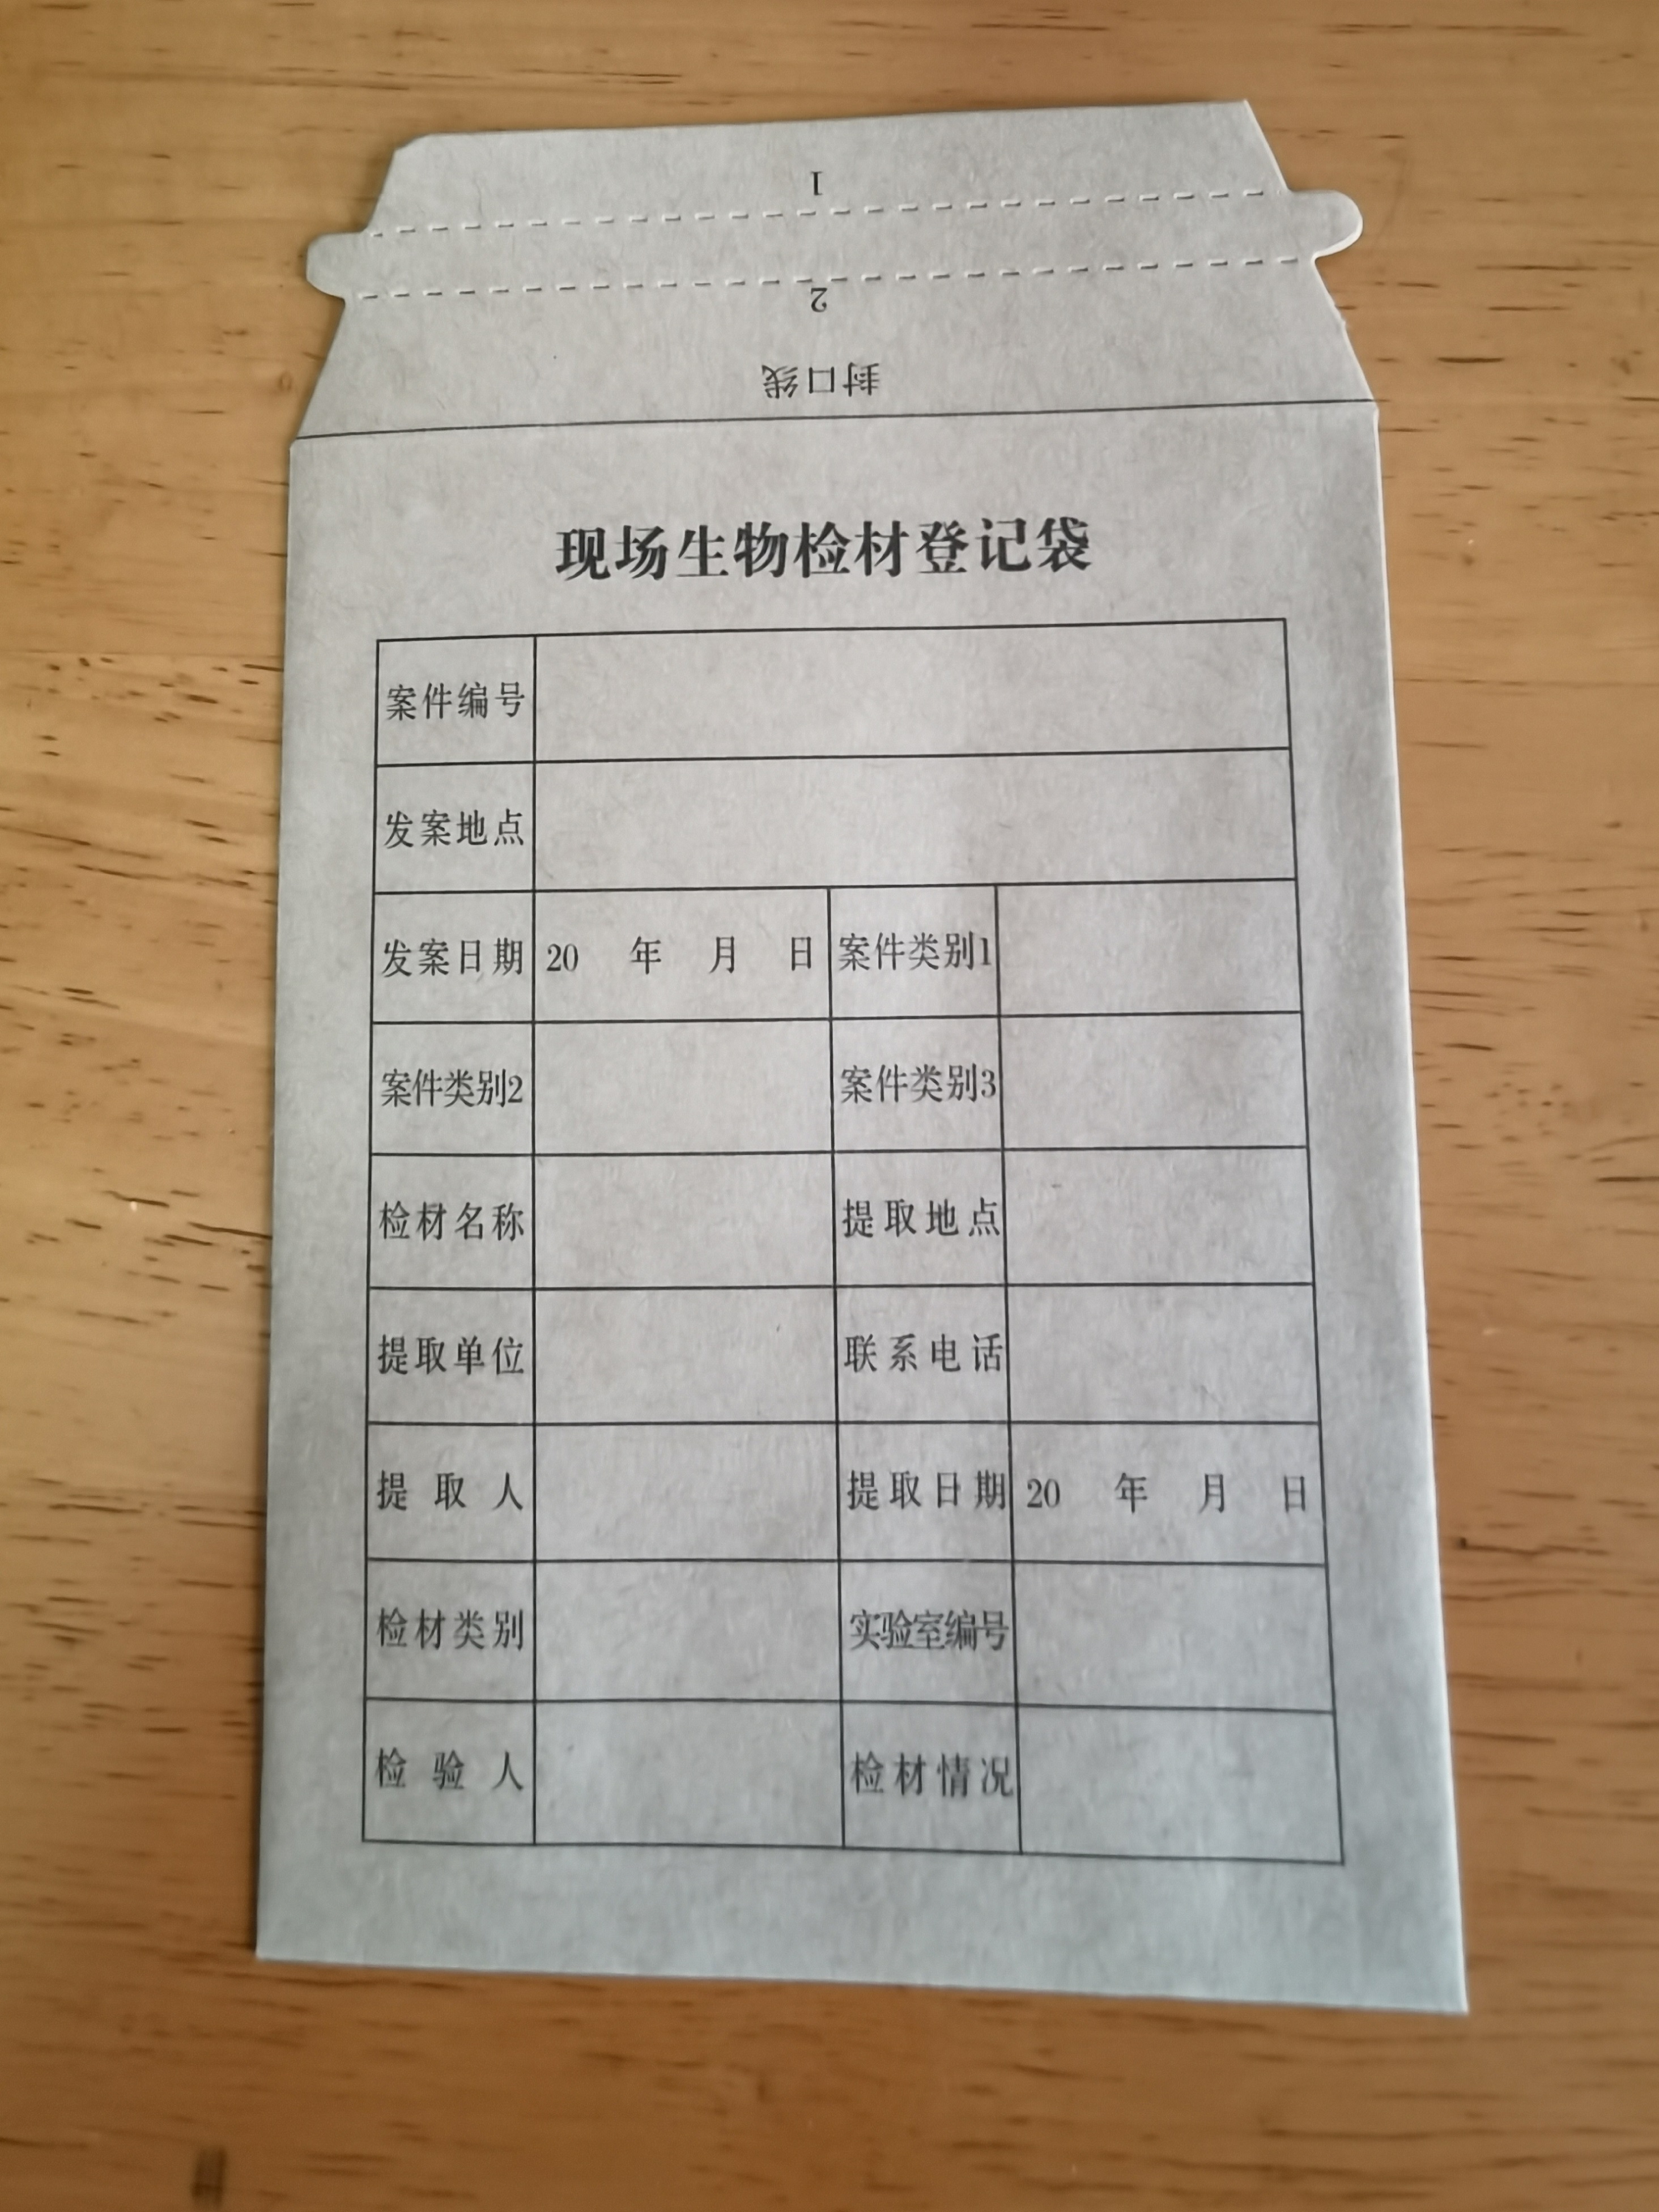 1
2
封口线
现场生物检材登记袋
案件编号
发案地点
发案日期 20 年 月 日 案件类别1
案件类别2 案件类别3
检材名称 提取地点
提取单位 联系电话
提取人 提取日期 20 年 月 日
检材类别 实验室编号
检验人 检材情况